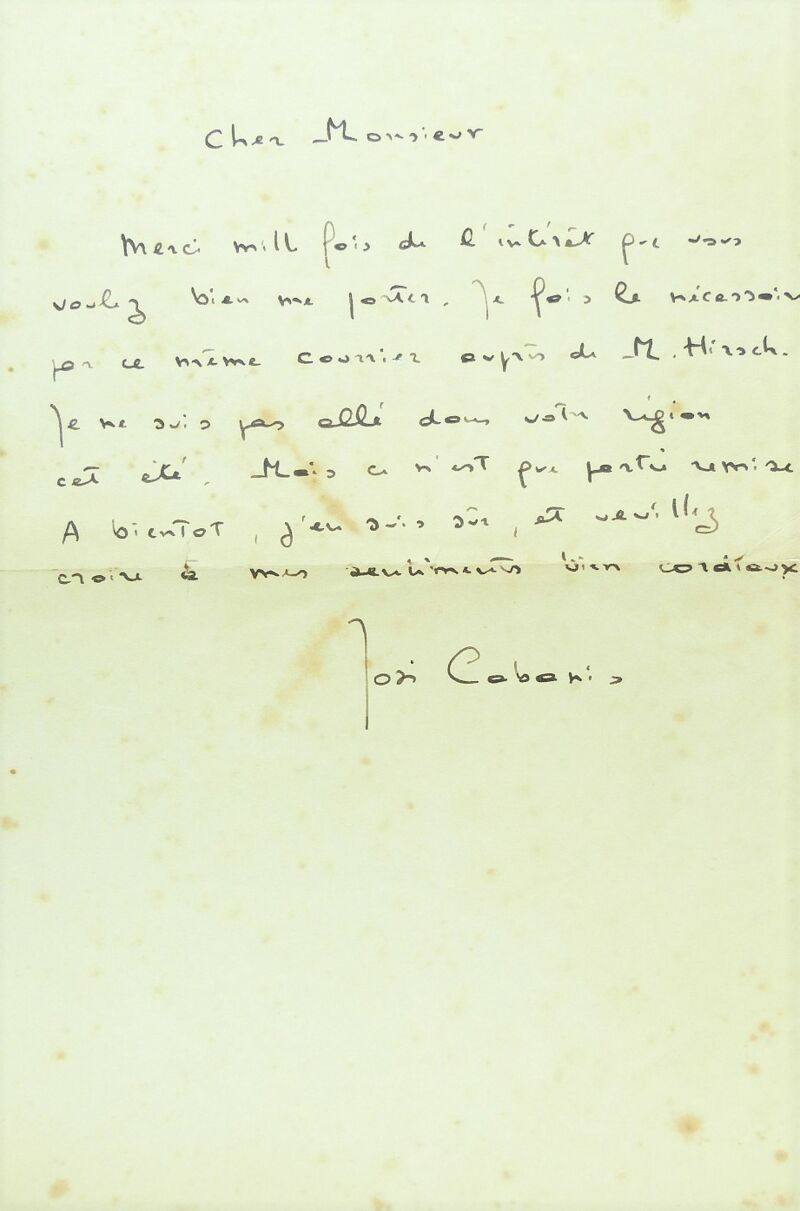 Cher Monsieur
Merci mill fois de l'intérêt que vous
voulez bien me porter. Je fais le nécessaire
par ce même courrier auprès de M. Hirsch.
Je ne suis pas allé dans votre région
cet été. Mais ce n'est que partie remise
A bientot, j'en suis sûr, et veuillez
croire à mes sentiments bien cordiaux
José Cabanis